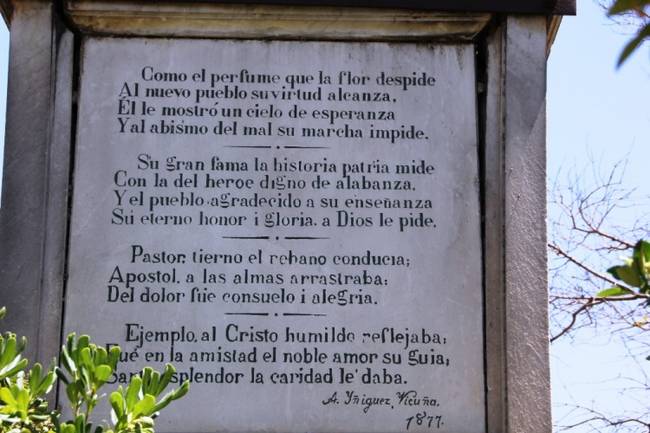 Como el perfume que la flor despide
Al nuevo pueblo su virtud alcanza,
Él le mostró un cielo de esperanza
Y al abismo del mal su marcha impide.
Su gran fama la historia patria mide
Con la del heroe digno de alabanza,
Y el pueblo agradecido a su enseñanza
Su eterno honor i gloria, a Dios le pide.
Pastor, tierno el rebaño conducia;
Apostol, a las almas arrastraba;
Del dolor fue consuelo i alegria.
Ejemplo, al Cristo humilde reflejaba;
Fué en la amistad el noble amor su guia;
splendor la caridad le daba.
A. Yñiguez, Vicuña.
1877.